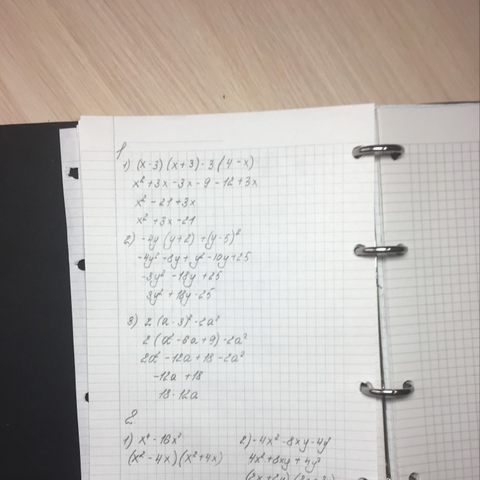 1
1) (x-3)(x+3)-3(4-x)
x²+3x-3x-9-12+3x
x²-21+3x
x²+3x-21
2) -4y(y+2)+(y-5)²
-4y²-8y+y²-10y+25
-3y²-18y+25
3y²+18y-25
3) 2(a-3)²-2a²
2(a²-6a+9)-2a²
2a²-12a+18-2a²
-12a+18
18-12a
2
1) x⁴-16x² 2) -4x²-8xy-4y²
(x²-4x)(x²+4x) 4x²+8xy+4y²